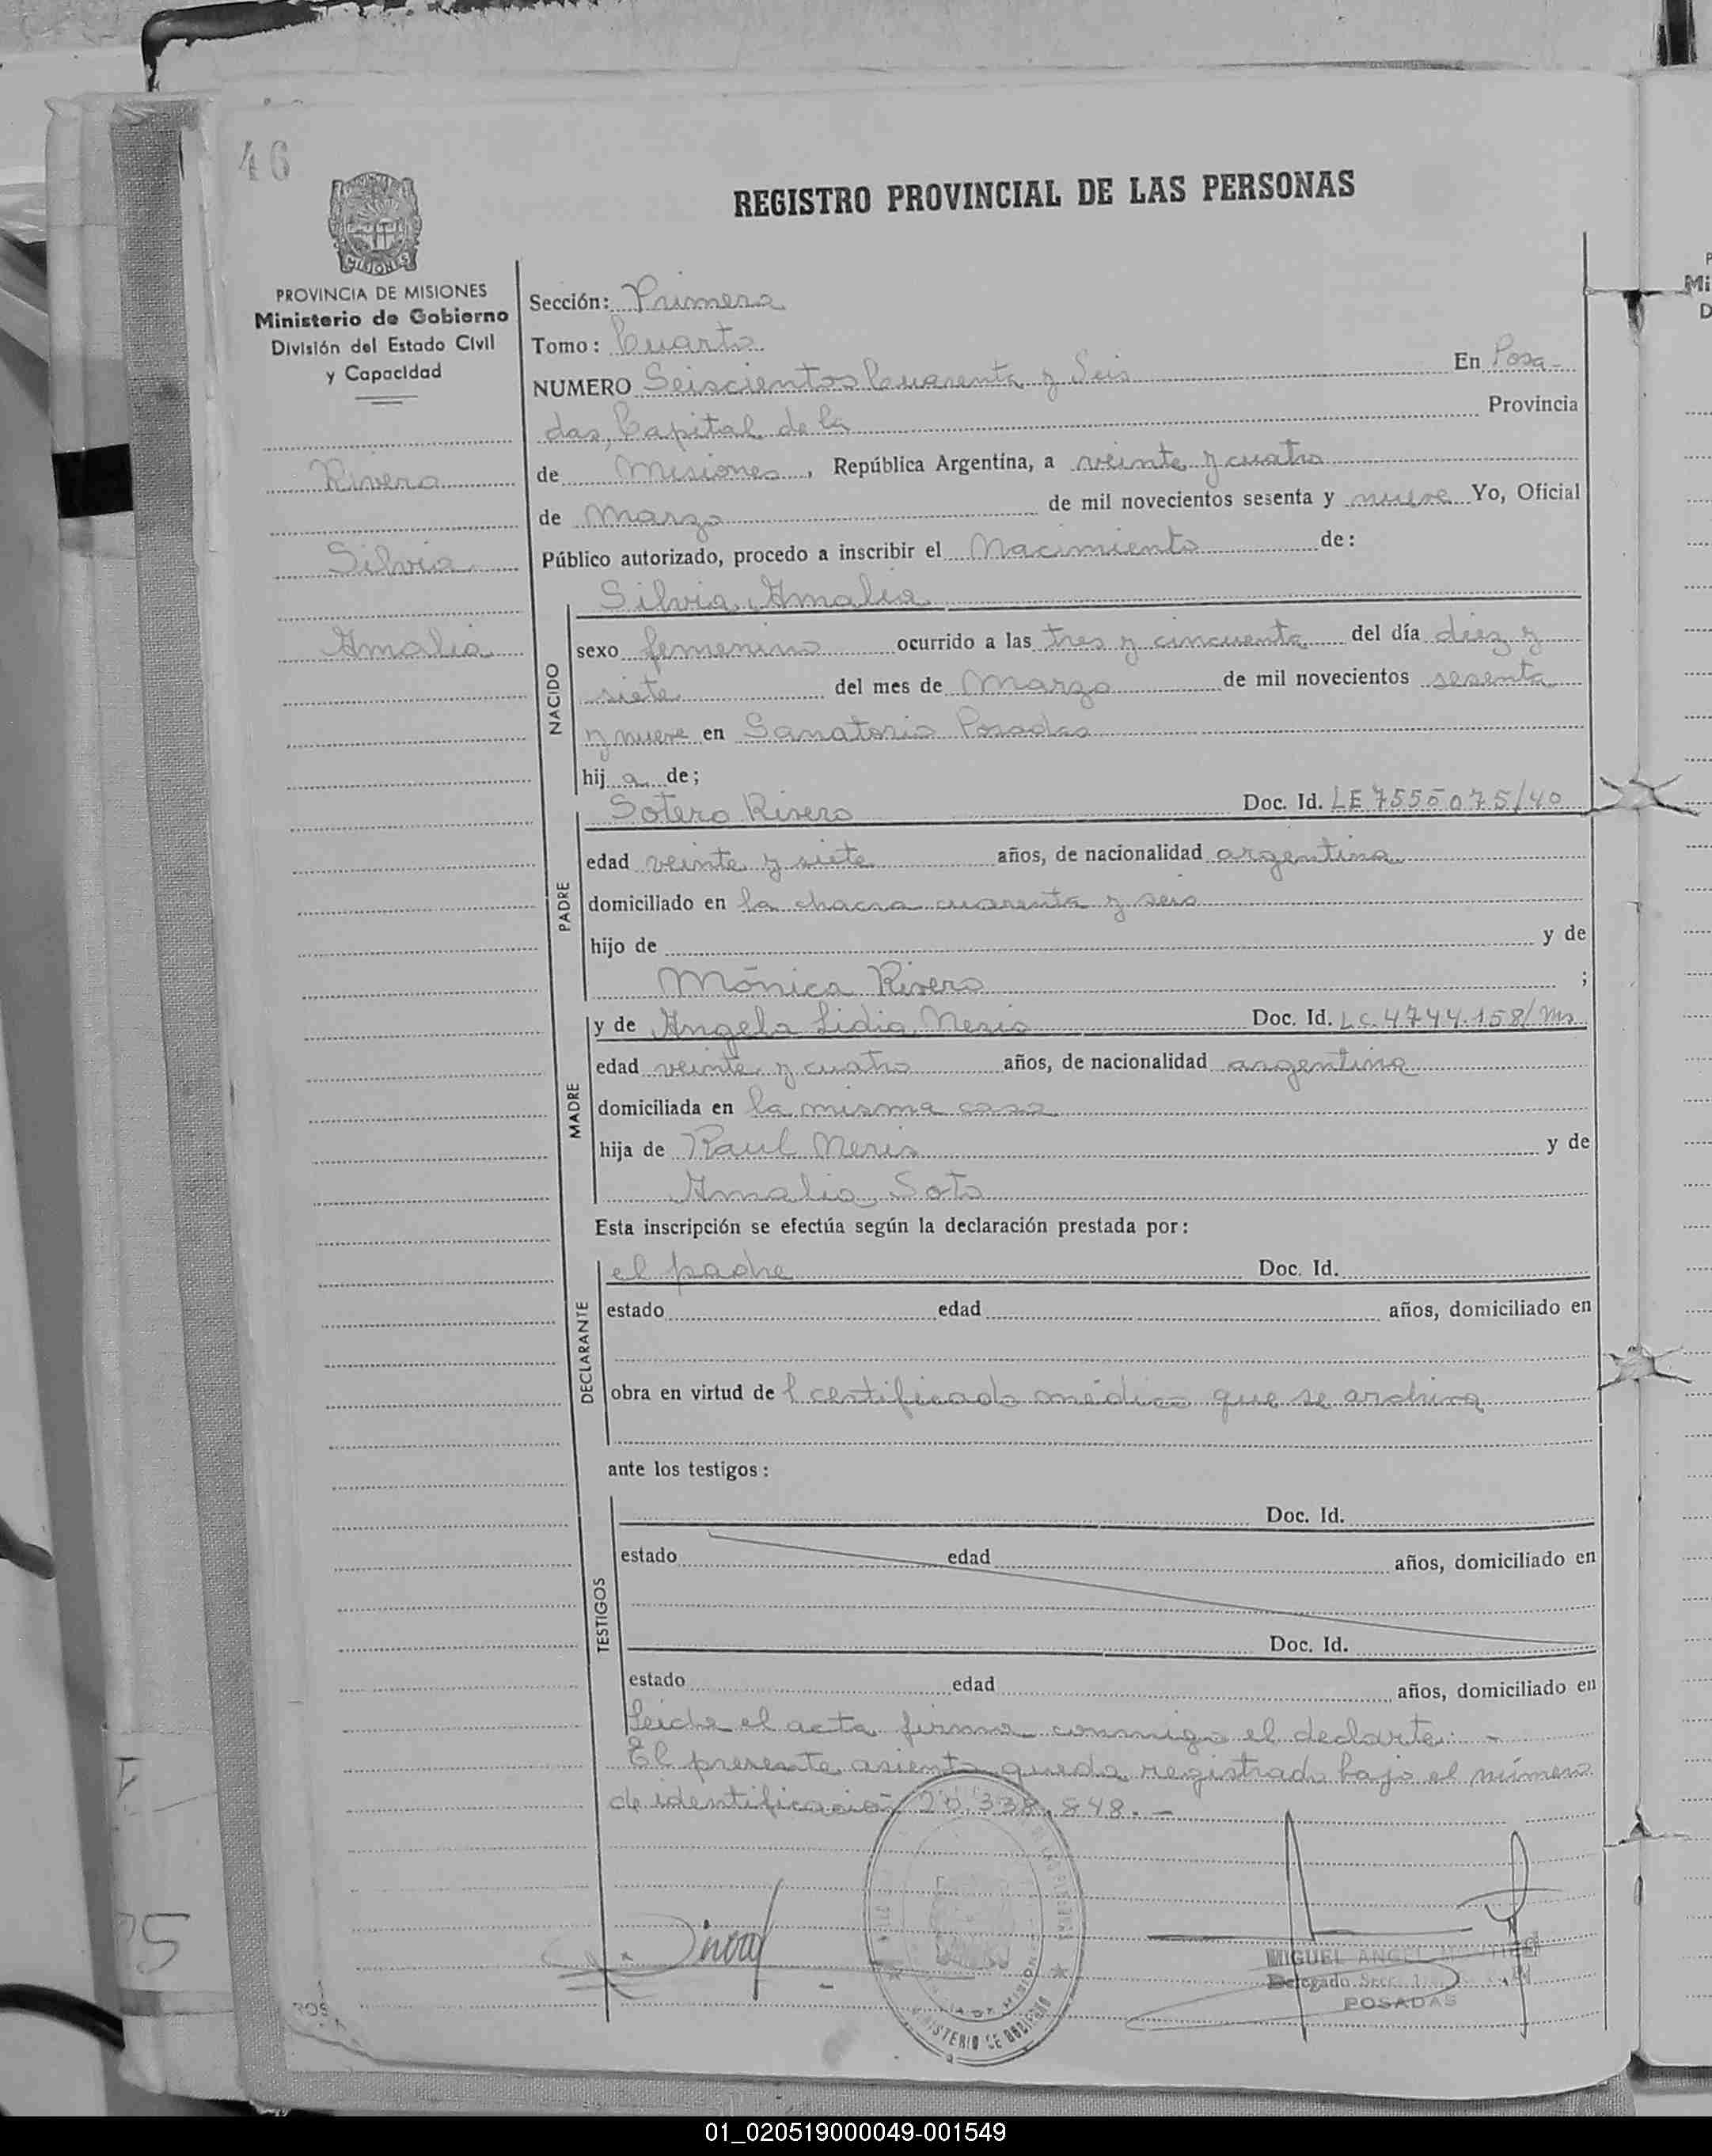 46
REGISTRO PROVINCIAL DE LAS PERSONAS
MISIONES
PROVINCIA DE MISIONES
Ministerio de Gobierno
División del Estado Civil
y Capacidad
Rivero
Silvia
Amalia
Sección: Primera
Tomo: Cuarto
NUMERO Seiscientos Cuarenta y Seis En Posa-
das, Capital de la Provincia
de Misiones, República Argentina, a veinte y cuatro
de Marzo de mil novecientos sesenta y nueve Yo, Oficial
Público autorizado, procedo a inscribir el Nacimiento de:
NACIDO
Silvia Amalia
sexo femenino ocurrido a las tres y cincuenta del día diez y
siete del mes de Marzo de mil novecientos sesenta
y nueve en Sanatorio Posadas
hija de;
PADRE
Sotero Rivero Doc. Id. LE 7555075/40
edad veinte y siete años, de nacionalidad argentina
domiciliado en la chacra cuarenta y seis
hijo de y de
Mónica Rivero ;
MADRE
y de Angela Lidia Neris Doc. Id. L.C. 4744.158/Ms
edad veinte y cuatro años, de nacionalidad argentina
domiciliada en la misma casa
hija de Raul Neris y de
Amalia Soto
Esta inscripción se efectúa según la declaración prestada por:
DECLARANTE
el padre Doc. Id.
estado edad años, domiciliado en
obra en virtud de l certificado médico que se archiva
ante los testigos:
TESTIGOS
Doc. Id.
estado edad años, domiciliado en
Doc. Id.
estado edad años, domiciliado en
Leida el acta firma conmigo el declarte. -
El presente asiento queda registrado bajo el número
de identificación 20.338.848. -
MINISTERIO DE GOBIERNO
MIGUEL ANGEL
Delegado Secc. 1
POSADAS
01_020519000049-001549